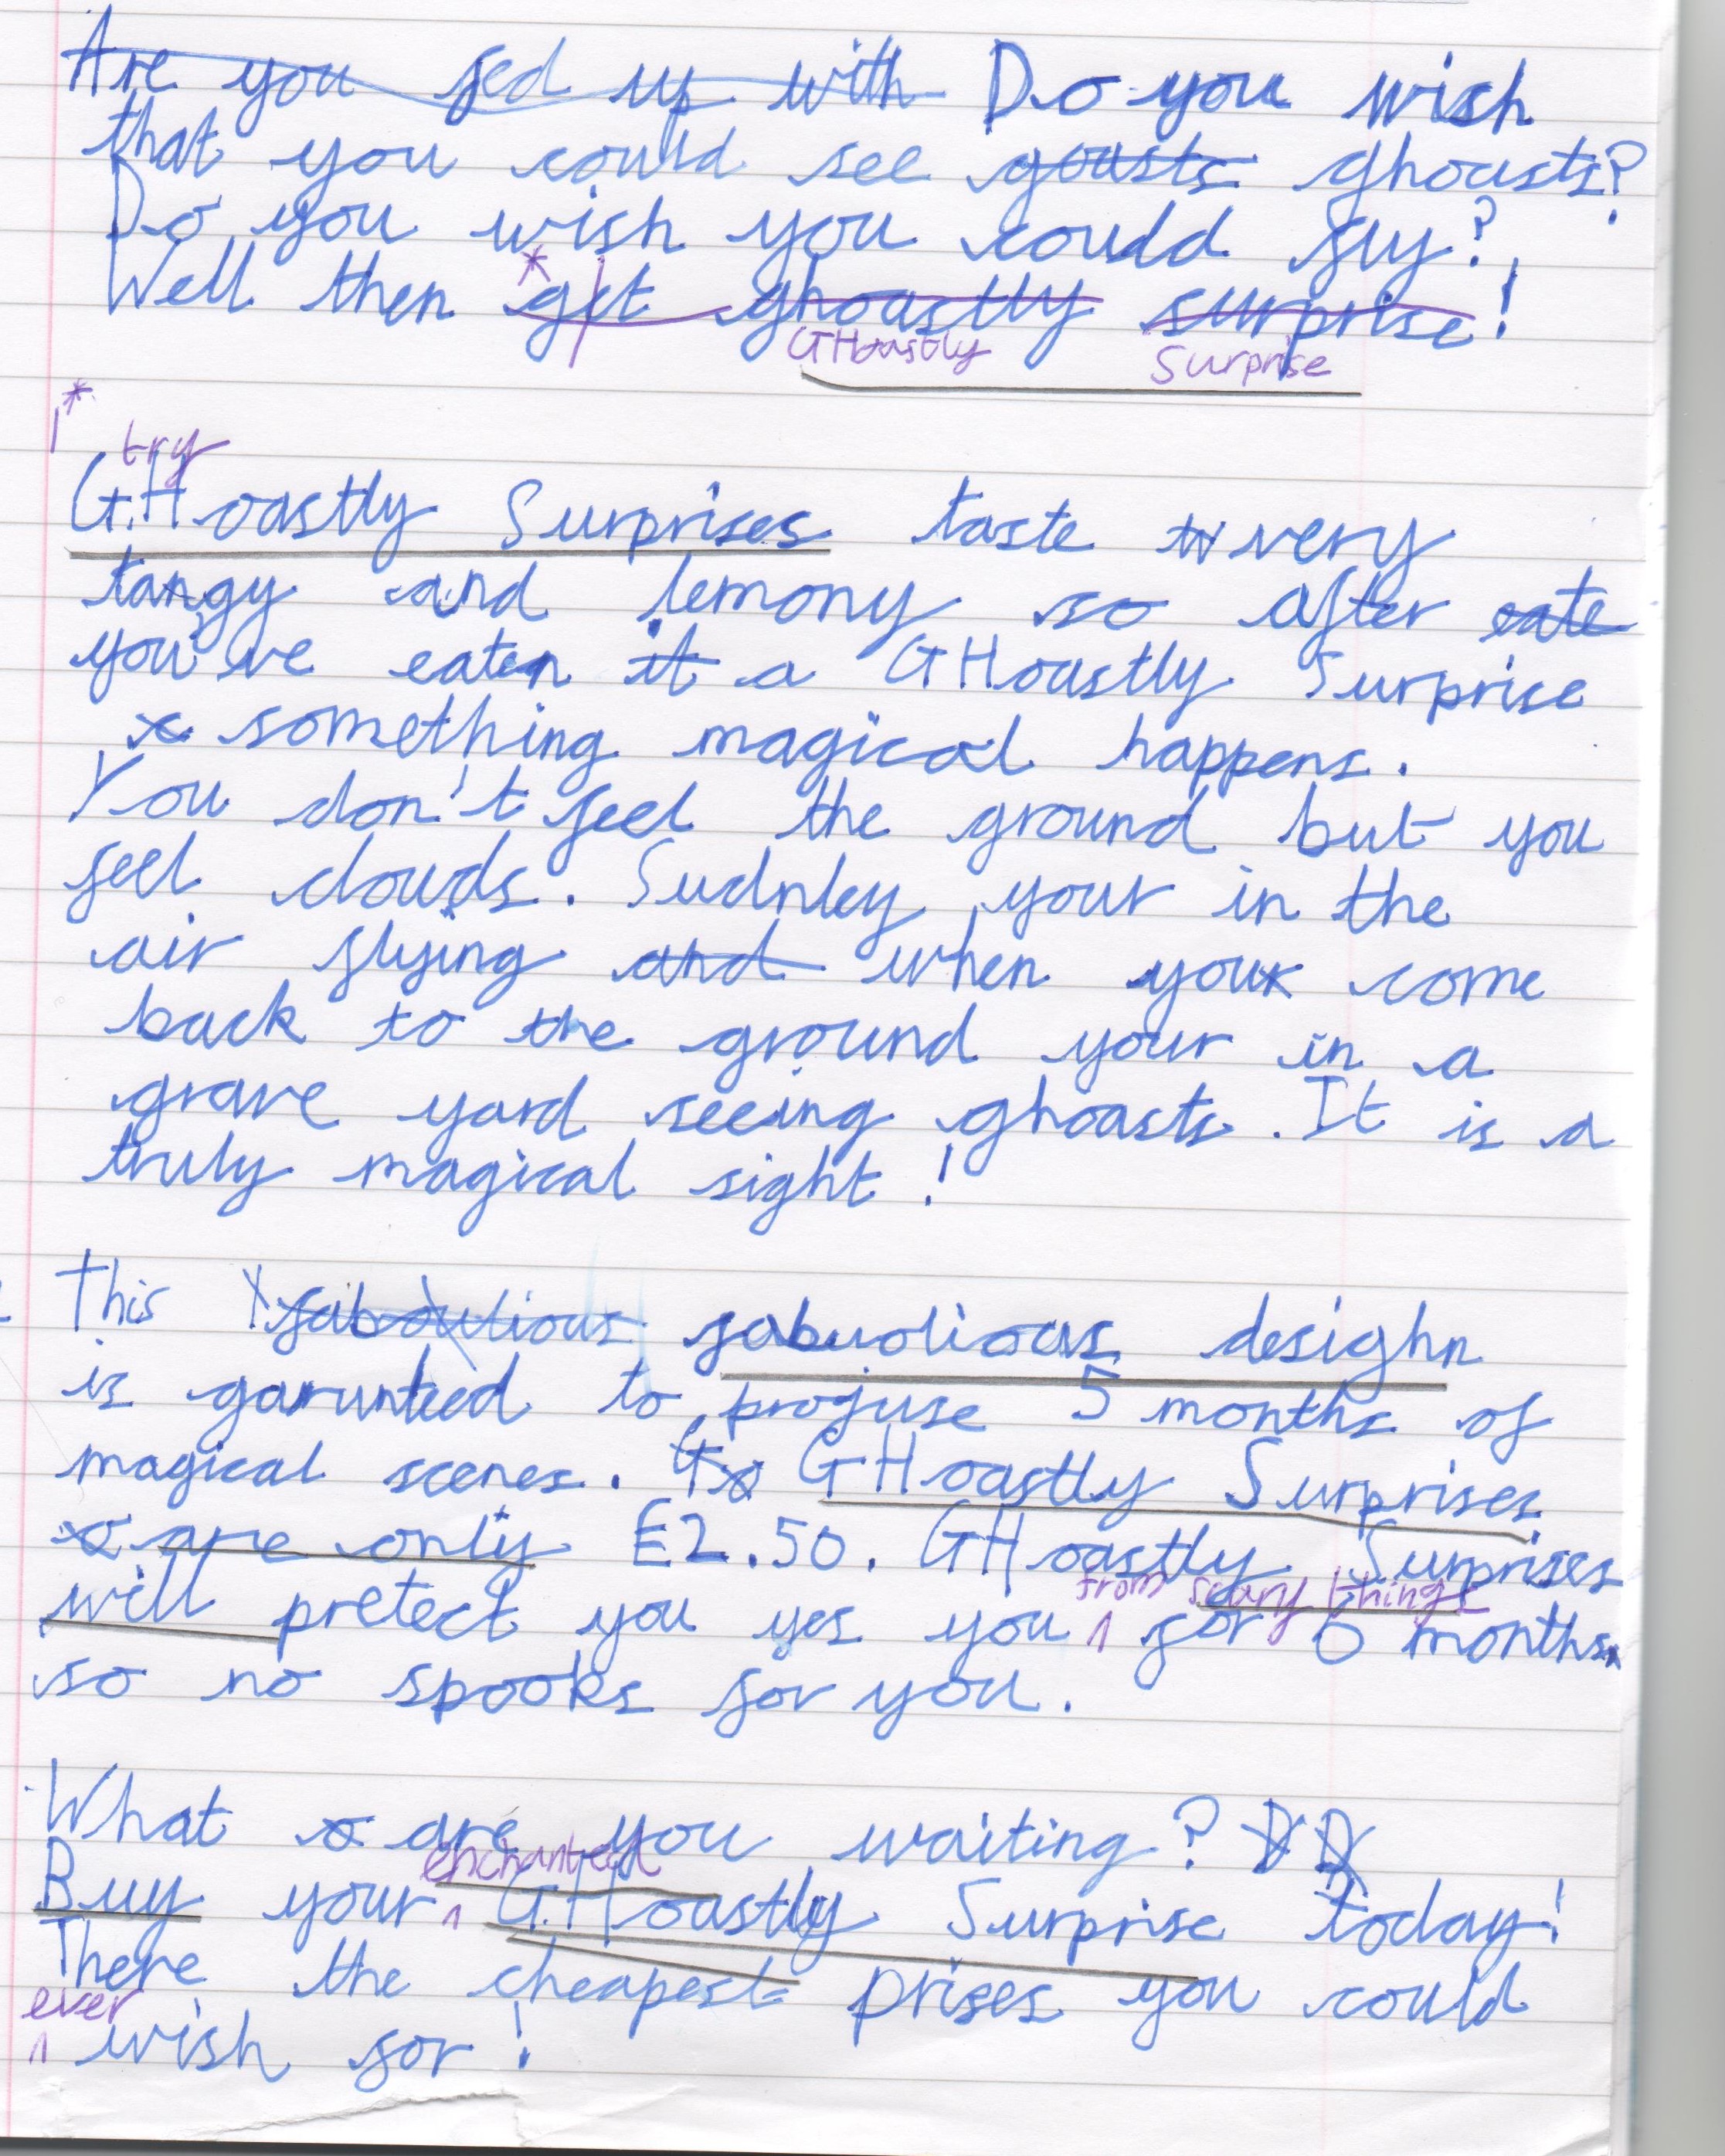 Are you fed up with Do you wish
that you could see goasts ghoasts?
Do you wish you could fly?
Well then *get ghoastly surprise!
GHoastly Surprise
*
try
GHoastly Surprises taste very
tangy and lemony so after eate
you've eaten it a GHoastly Surprise
something magical happens.
You don't feel the ground but you
feel clouds. Sudnley your in the
air flying and when your come
back to the ground your in a
grave yard seeing ghoasts. It is a
truly magical sight!
This faboulious fabuolious desighn
is garunteed to profuse 5 months of
magical scenes. GHoastly Surprises
are only £2.50. GHoastly Surprises
from scary things
will pretect you yes you ^ for 6 months
so no spooks for you.
What are you waiting?
enchanted
Buy your ^ GHoastly Surprise today!
There the cheapest prises you could
ever
^ wish for!